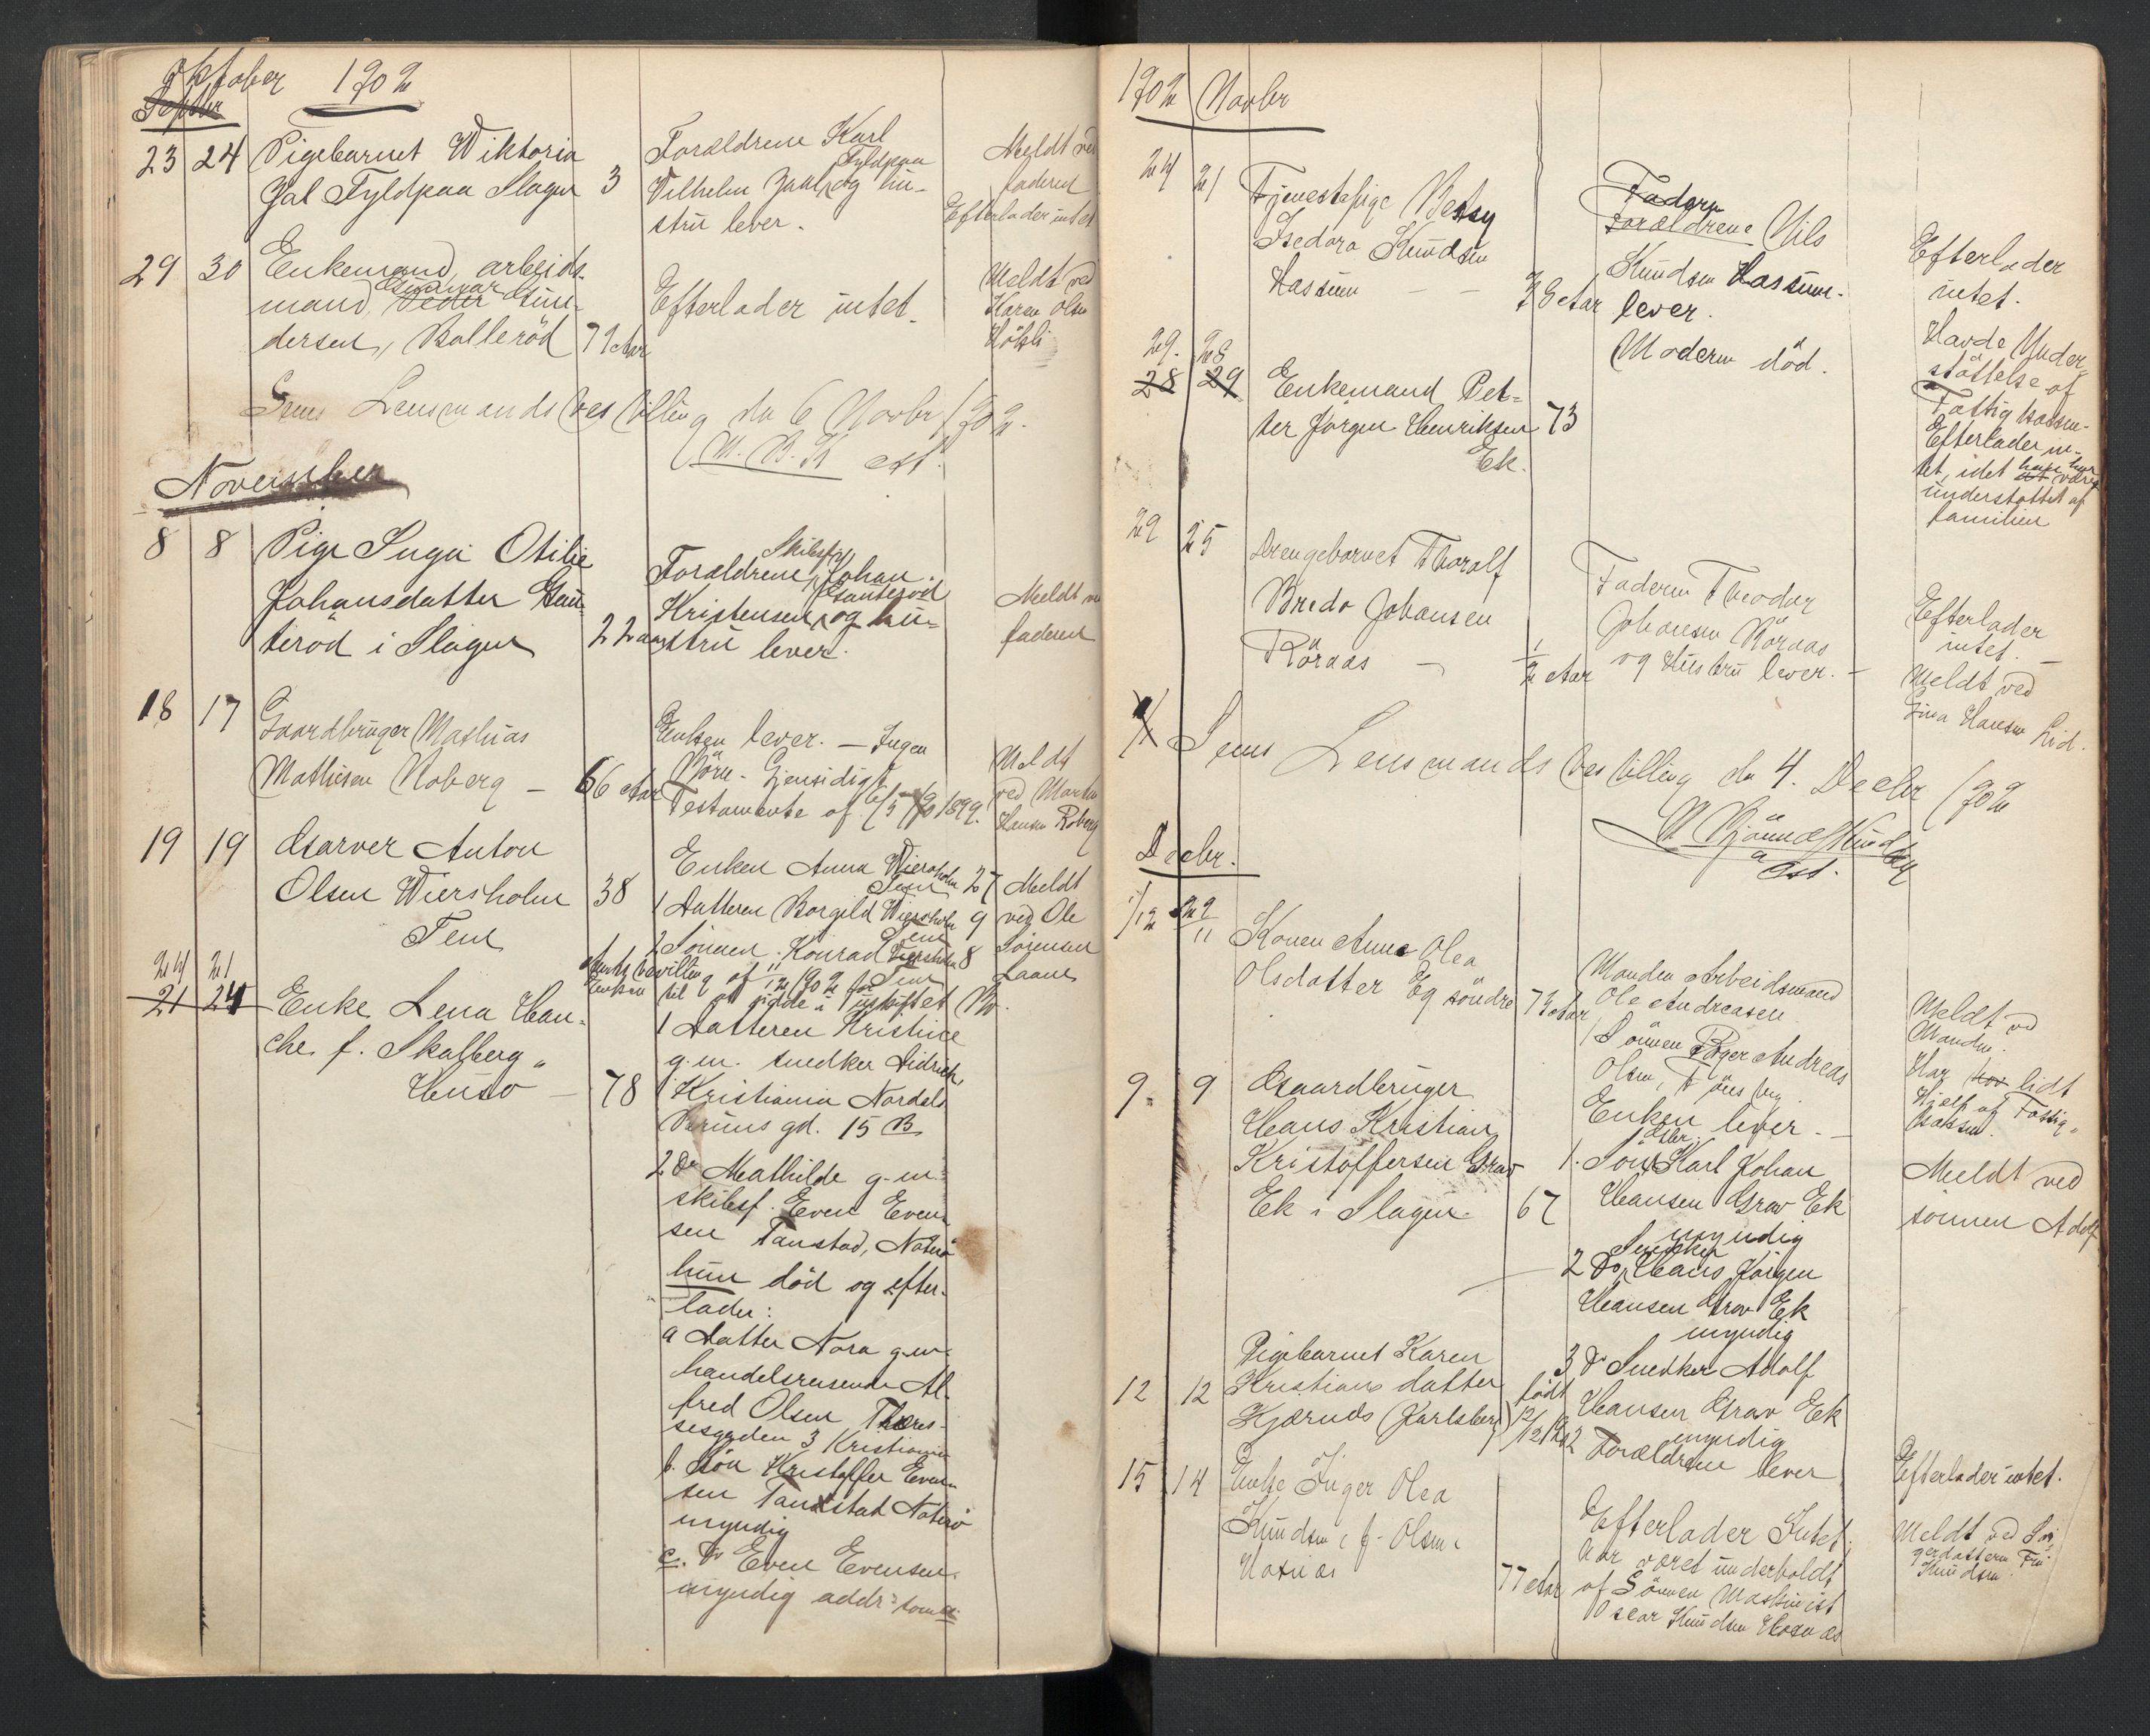 Oktober 1902
Septbr
23 24 Pigebarnet Wiktoria
Jal Fyldpaa Slagen 3
Forældrene Karl
Fyldpaa
Vilhelm Jaal og hu-
stru lever.
Meldt ved
faderen
Efterlader intet
29 30 Enkemand, arbeids-
mand, Peder Gun-
dersen, Bollerød 79 Aar
Efterlader intet.
Meldt ved
Karen Olsen
Sems Lensmandsbestilling den 6 Novbr 1902.
November
8 8 Pige Inga Otilie
Johansdatter Gun-
terød i Slagen 22 aar
Skibsf
Forældrene, Johan
Gunterød
Kristensen og hu-
stru lever.
Meldt ved
faderen
18 17 Gaardbruger Mathias
Mathisen Roberg – 66 Aar
Enken lever. – Ingen
Börn. Gjensidigt
Testamente af 1899.
Meldt
ved Martin
Hansen Roberg
19 19 Garver Anton
Olsen Wiersholm 38
Tem
Enken Anna Wiersholm 27
Tem
1 Datteren Borgild Wiersholm 9
Tem
2 Sönnen Konrad Wiersholm 8
Tem
Meldt
ved Ole
Sörensen
bevilling af 11/12 1902 for
Enken til at sidde i uskiftet Bo.
24 21
21 24 Enke Lena Han-
che f. Skalberg
Husö – 78
1 Datteren Kristine
g.m. snedker Didrich
Kristiania Nordals
Bruns gd. 15 B
2 Do Mathilde g.m.
skibsf. Even Even-
sen Tanstad, Nøterø
hun död og efter-
lader:
a Datter Nora g.m.
handelsreisende Al-
fred Olsen Theres-
sesgaden 3 Kristiania
b. Søn Kristoffer Even-
sen Tanstad Nøterø
myndig
c. Do Even Evensen
myndig addr: som a
1902 Novbr
24 21 Tjenestepige Betsy
Isedora Knudsen
Hassum – –
Faderen
Forældrene Nils
Knudsen Hassum
lever.
Moderen död.
Efterlader
intet.
Havde Under-
støttelse af
Fattigkassen
29. 28
28 29 Enkemand Pet-
ter Jörgen Henriksen 73
Ek.
Efterlader in-
tet, idet han har været
understøttet af
familien
29 25 Drengebarnet Thoralf
Bredo Johansen
Röraas – 1/2 Aar
Faderen Theodor
Johansen Röraas
og Hustru lever. –
Efterlader
intet. –
Meldt ved
Lina Hansen Lid.
Sems Lensmandsbestilling den 4. Decbr 1902
Decbr.
1/12 29/11 Konen Anne Olea
Olsdatter Eg söndre 73 Aar
Manden Arbeidsmand
Ole Andreasen
1 Sönnen Andreas
Olsen, Tönsberg.
Meldt ved
Manden.
Har lidt
Hjælp af Fattig-
kassen.
9. 9 Gaardbruger
Hans Kristian
Kristoffersen Grav
Ek i Slagen. 67
Enken lever. –
1. Søn Karl Johan
Hansen Grav Ek
myndig
Snedker
2 Do, Hans Jörgen
Hansen Grav Ek
myndig
3 Do Snedker Adolf
Hansen Grav Ek
myndig
Meldt ved
sønnen Adolf
12 12 Pigebarnet Karen
Kristians datter
Kjærnds (Karlsberg)
födt
12/12 1902
Forældrene lever
Efterlader intet.
15 14 Enke Inger Olea
Knudsen f. Olsen
Husnæs 77 Aar
Efterlader Intet
har været underholdt
af Sönnen Maskinist
Oscar Knudsen Husnæs
Meldt ved
Knudsen